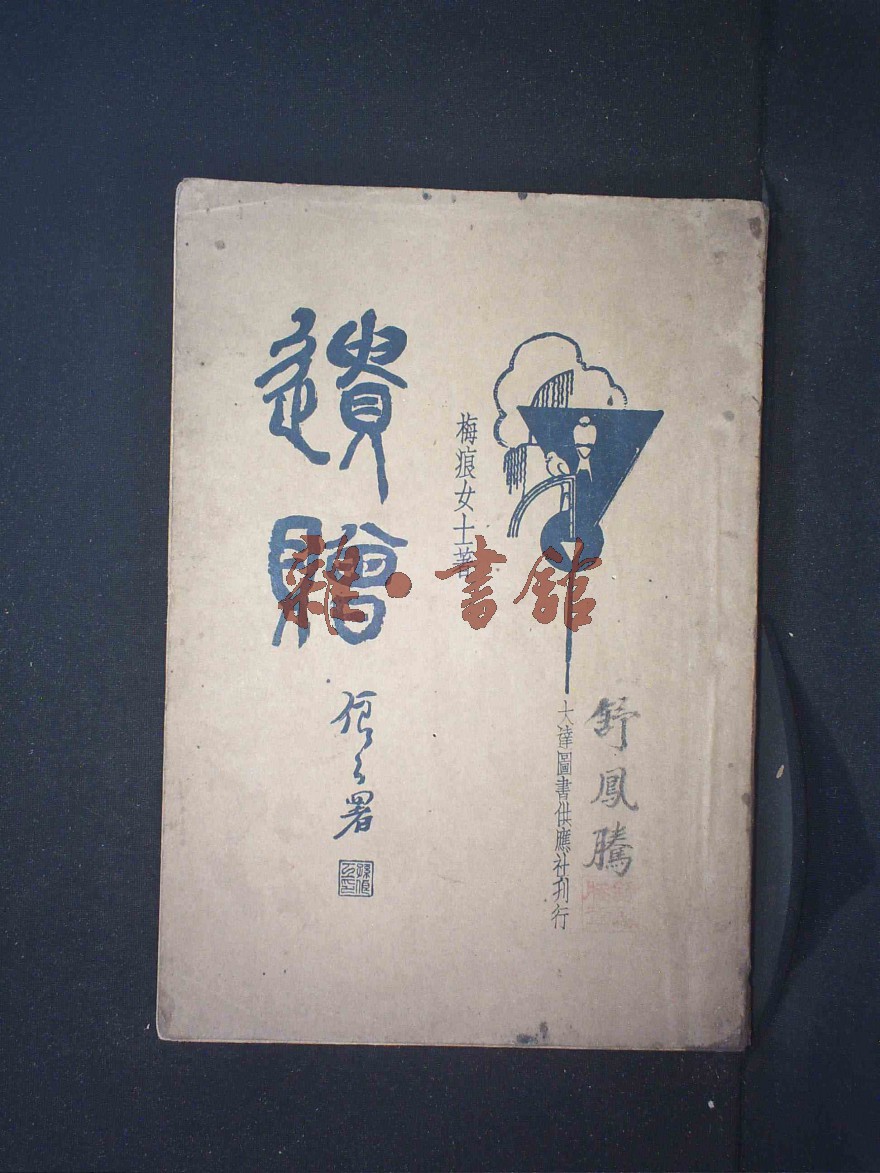 舒鳳騰
大達圖書供應社刊行
梅痕女士著
遺贈
俍工署
雜·書館